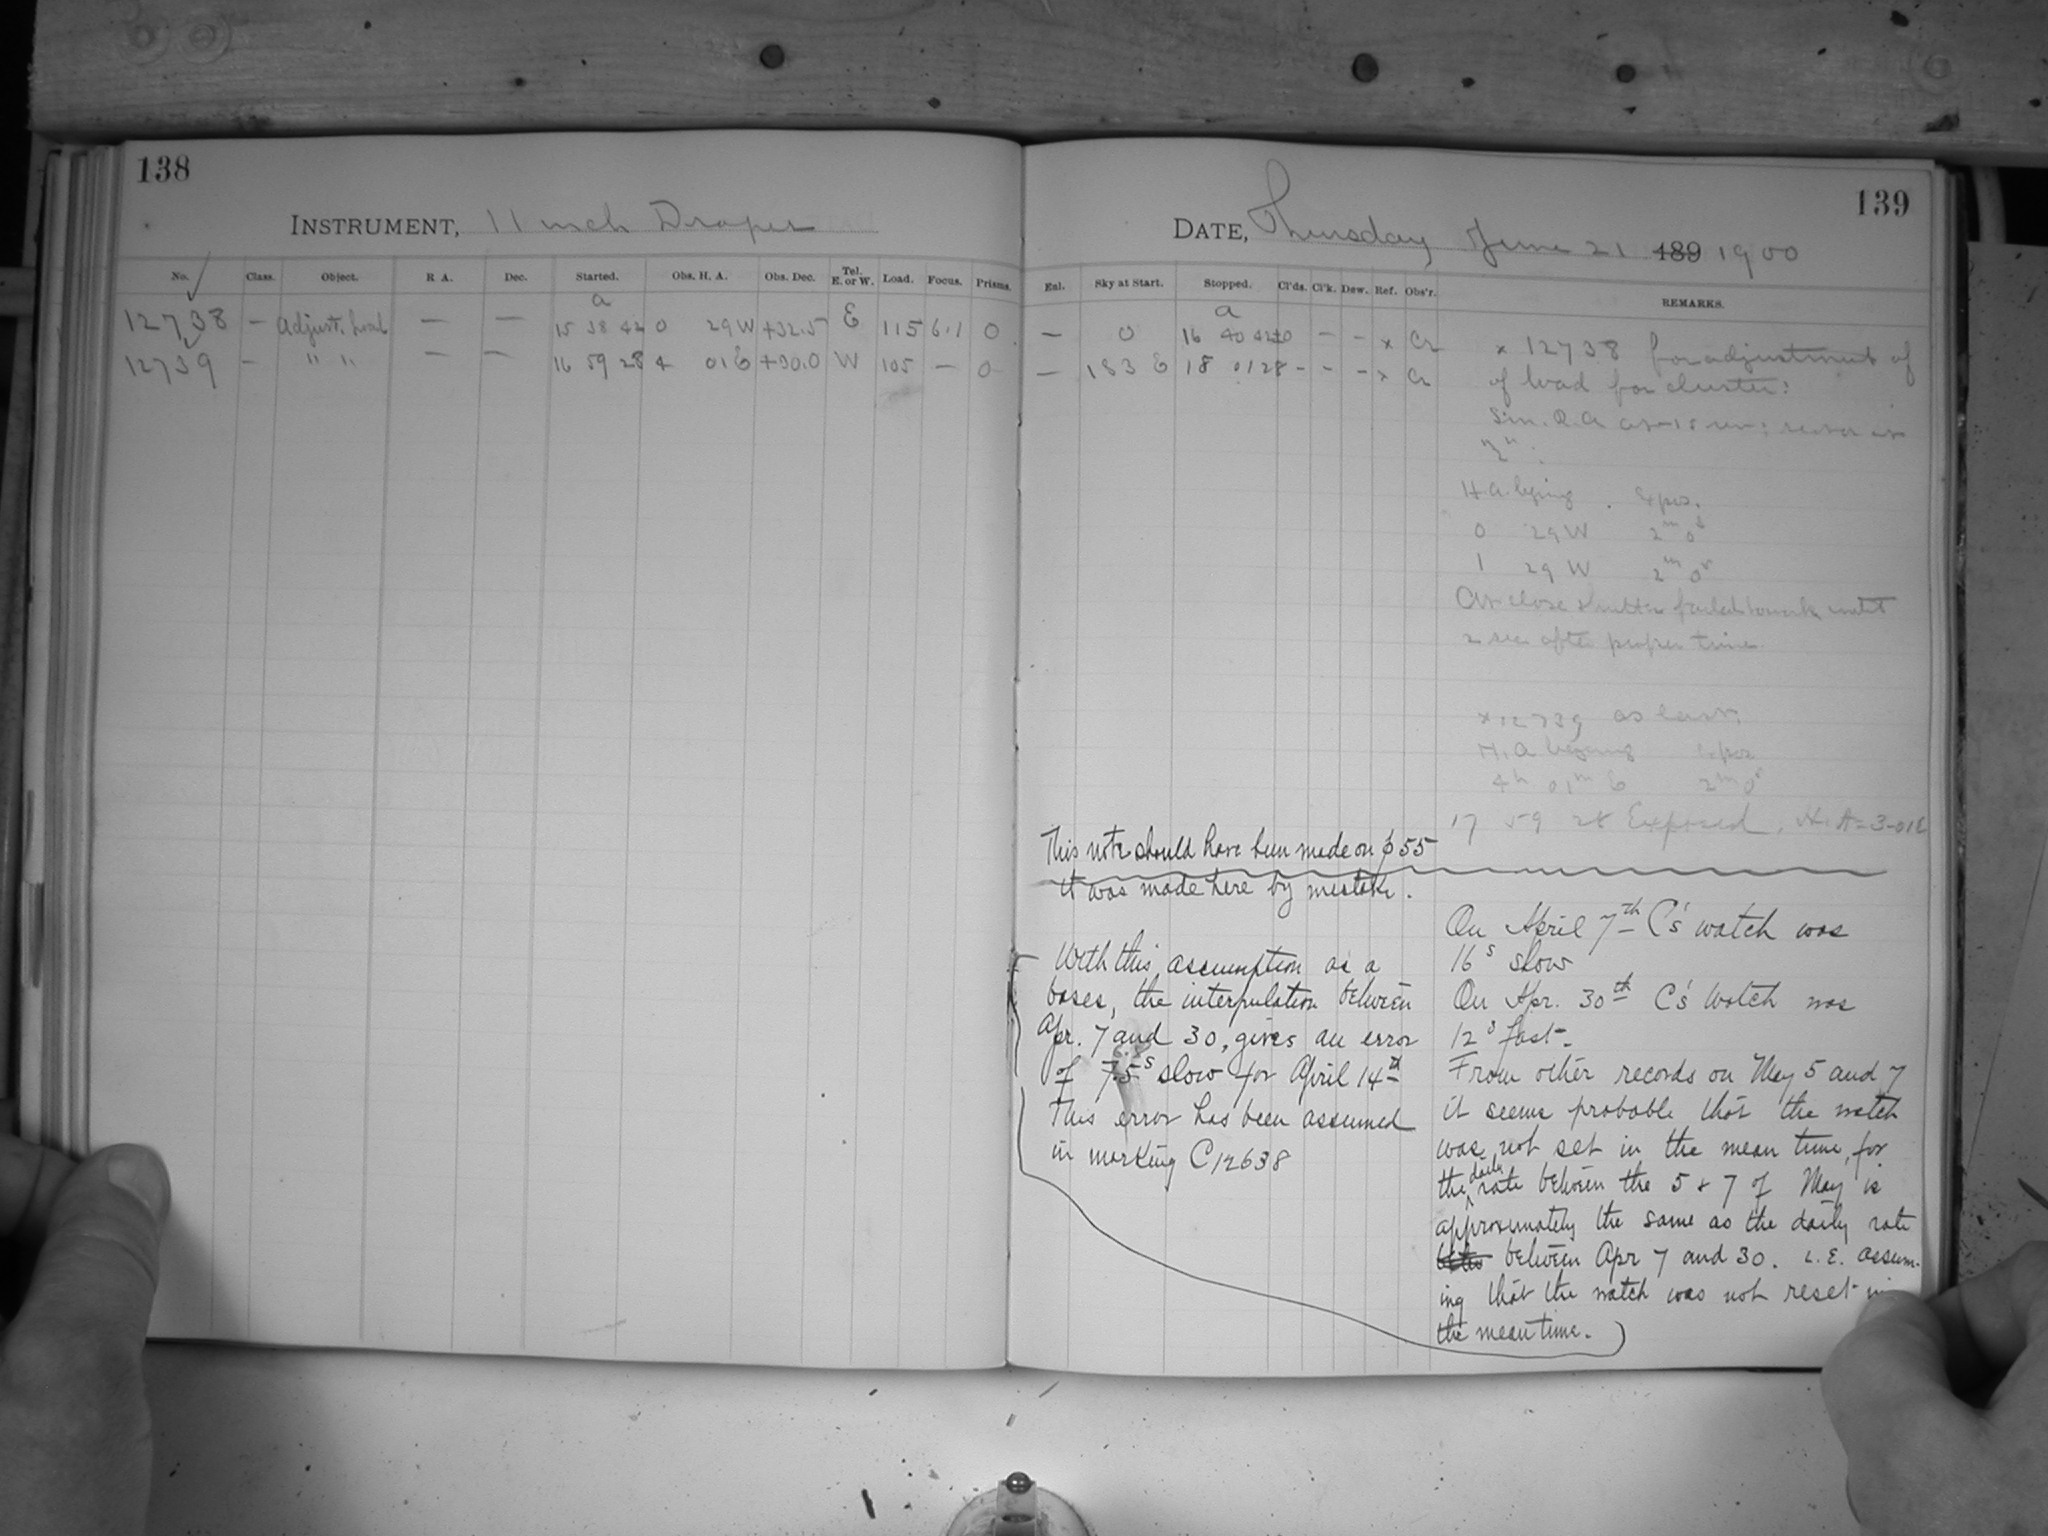 138
INSTRUMENT, 11 inch Draper
No. Class. Object. R A. Dec. Started. Obs. H. A. Obs. Dec. Tel. E. or W. Load. Focus. Prisms.
a
12738 — Adjust. load — — 15 38 42 0 29 W +32.5 E 115 6.1 0
12739 — " " — — 16 59 28 4 01 E +30.0 W 105 — 0
139
DATE, Thursday June 21 189 1900
Enl. Sky at Start. Stopped. Cl'ds. Cl'k. Dew. Ref. Obs'r. REMARKS.
a
— 0 16 40 42 — – x Cr
— 183 E 18 01 28 – – – x Cr
x 12738 for adjustment of
of load for cluster:
H.A. begins. Expos.
0 29 W 2m 0s
1 29 W 2m 0s
At close shutter failed to work until
2 sec after proper time
x 12739 as last,
H.A begins expos
4h 01m E 2m 0s
17 59 28 Exposed, H.A = 3-01E
This note should have been made on p 55
it was made here by mistake.
On April 7th C's watch was
16s slow
On Apr. 30th C's watch was
12s fast.
From other records on May 5 and 7
it seems probable that the watch
was not set in the mean time, for
the daily rate between the 5 & 7 of May is
approximately the same as the daily rate
between Apr 7 and 30. I.E. assum-
ing that the watch was not reset in
the mean time.)
With this assumption as a
bases, the interpulation between
Apr. 7 and 30, gives an error
of 7.5s slow for April 14th
This error has been assumed
in marking C12638